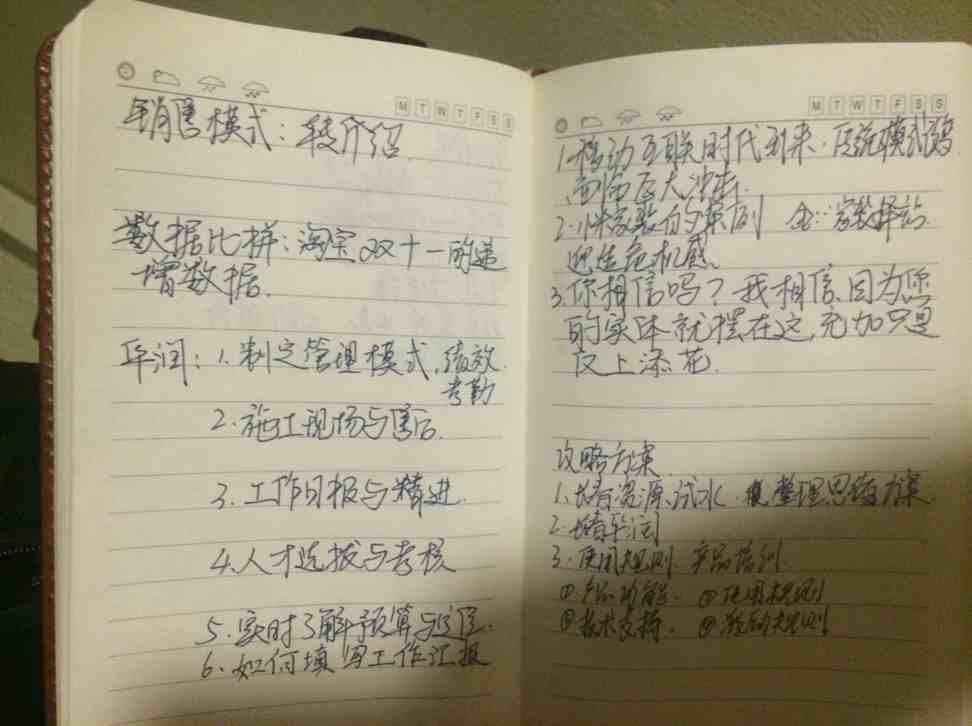 M T W T F S S
销售模式：转介绍
数据比拼：淘宝双十一的递
增数据.
华润：1.制定管理模式,绩效
考勤
2.施工现场与售后.
3.工作日报与精进.
4.人才选拔与考核
5.实时了解预算与
6.如何填写工作汇报
M T W T F S S
1.移动互联时代到来.传统模式
面临巨大冲击.
2.小米 的案例
危机感.
3.你相信吗？我相信.因为您
的实体就摆在这,充加只是
又上添花.
攻略方案
1. 资源,试水 整理思路方案
2. 华润
3.使用规则 产品培训
① ②使用规则
③技术支持. ④激励规则